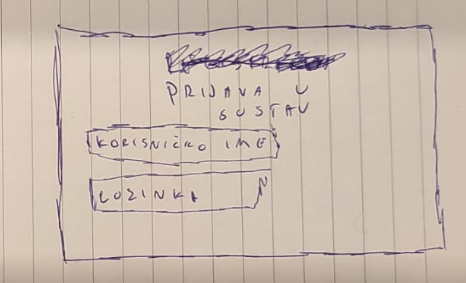 PRIJAVA U
SUSTAV
KORISNIČKO IME
LOZINKA